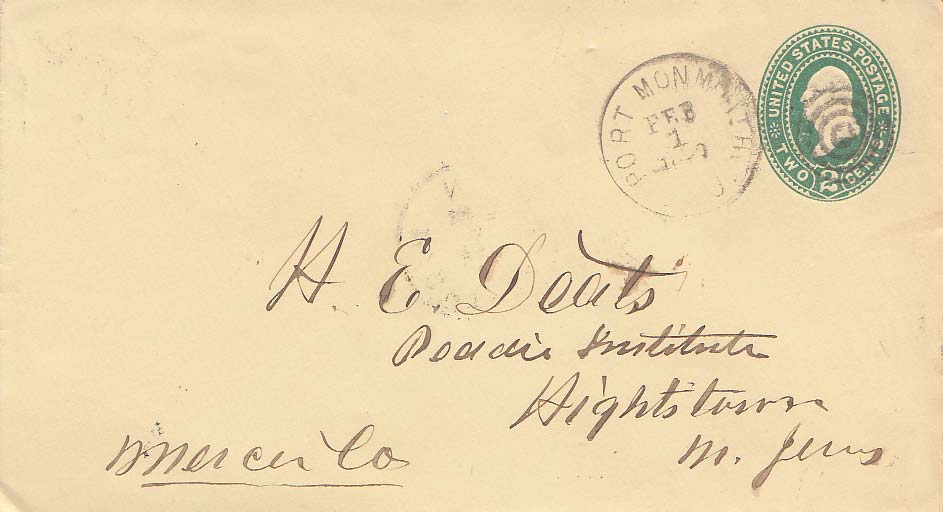 UNITED STATES POSTAGE
TWO 2 CENTS
PORT MONMOUTH
FEB
1
H. E. Deats
Peddie Institute
Hightstown
N. Jersy
Mercer Co